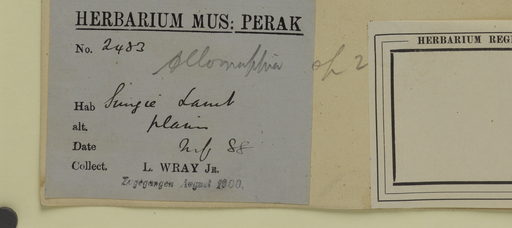 HERBARIUM MUS: PERAK
No. 2483
Allomorphia sp 2
Hab Sungie Laut
alt. plain
Date 88
Collect. L. WRAY JR.
Zugegangen August 1900.
HERBARIUM REG